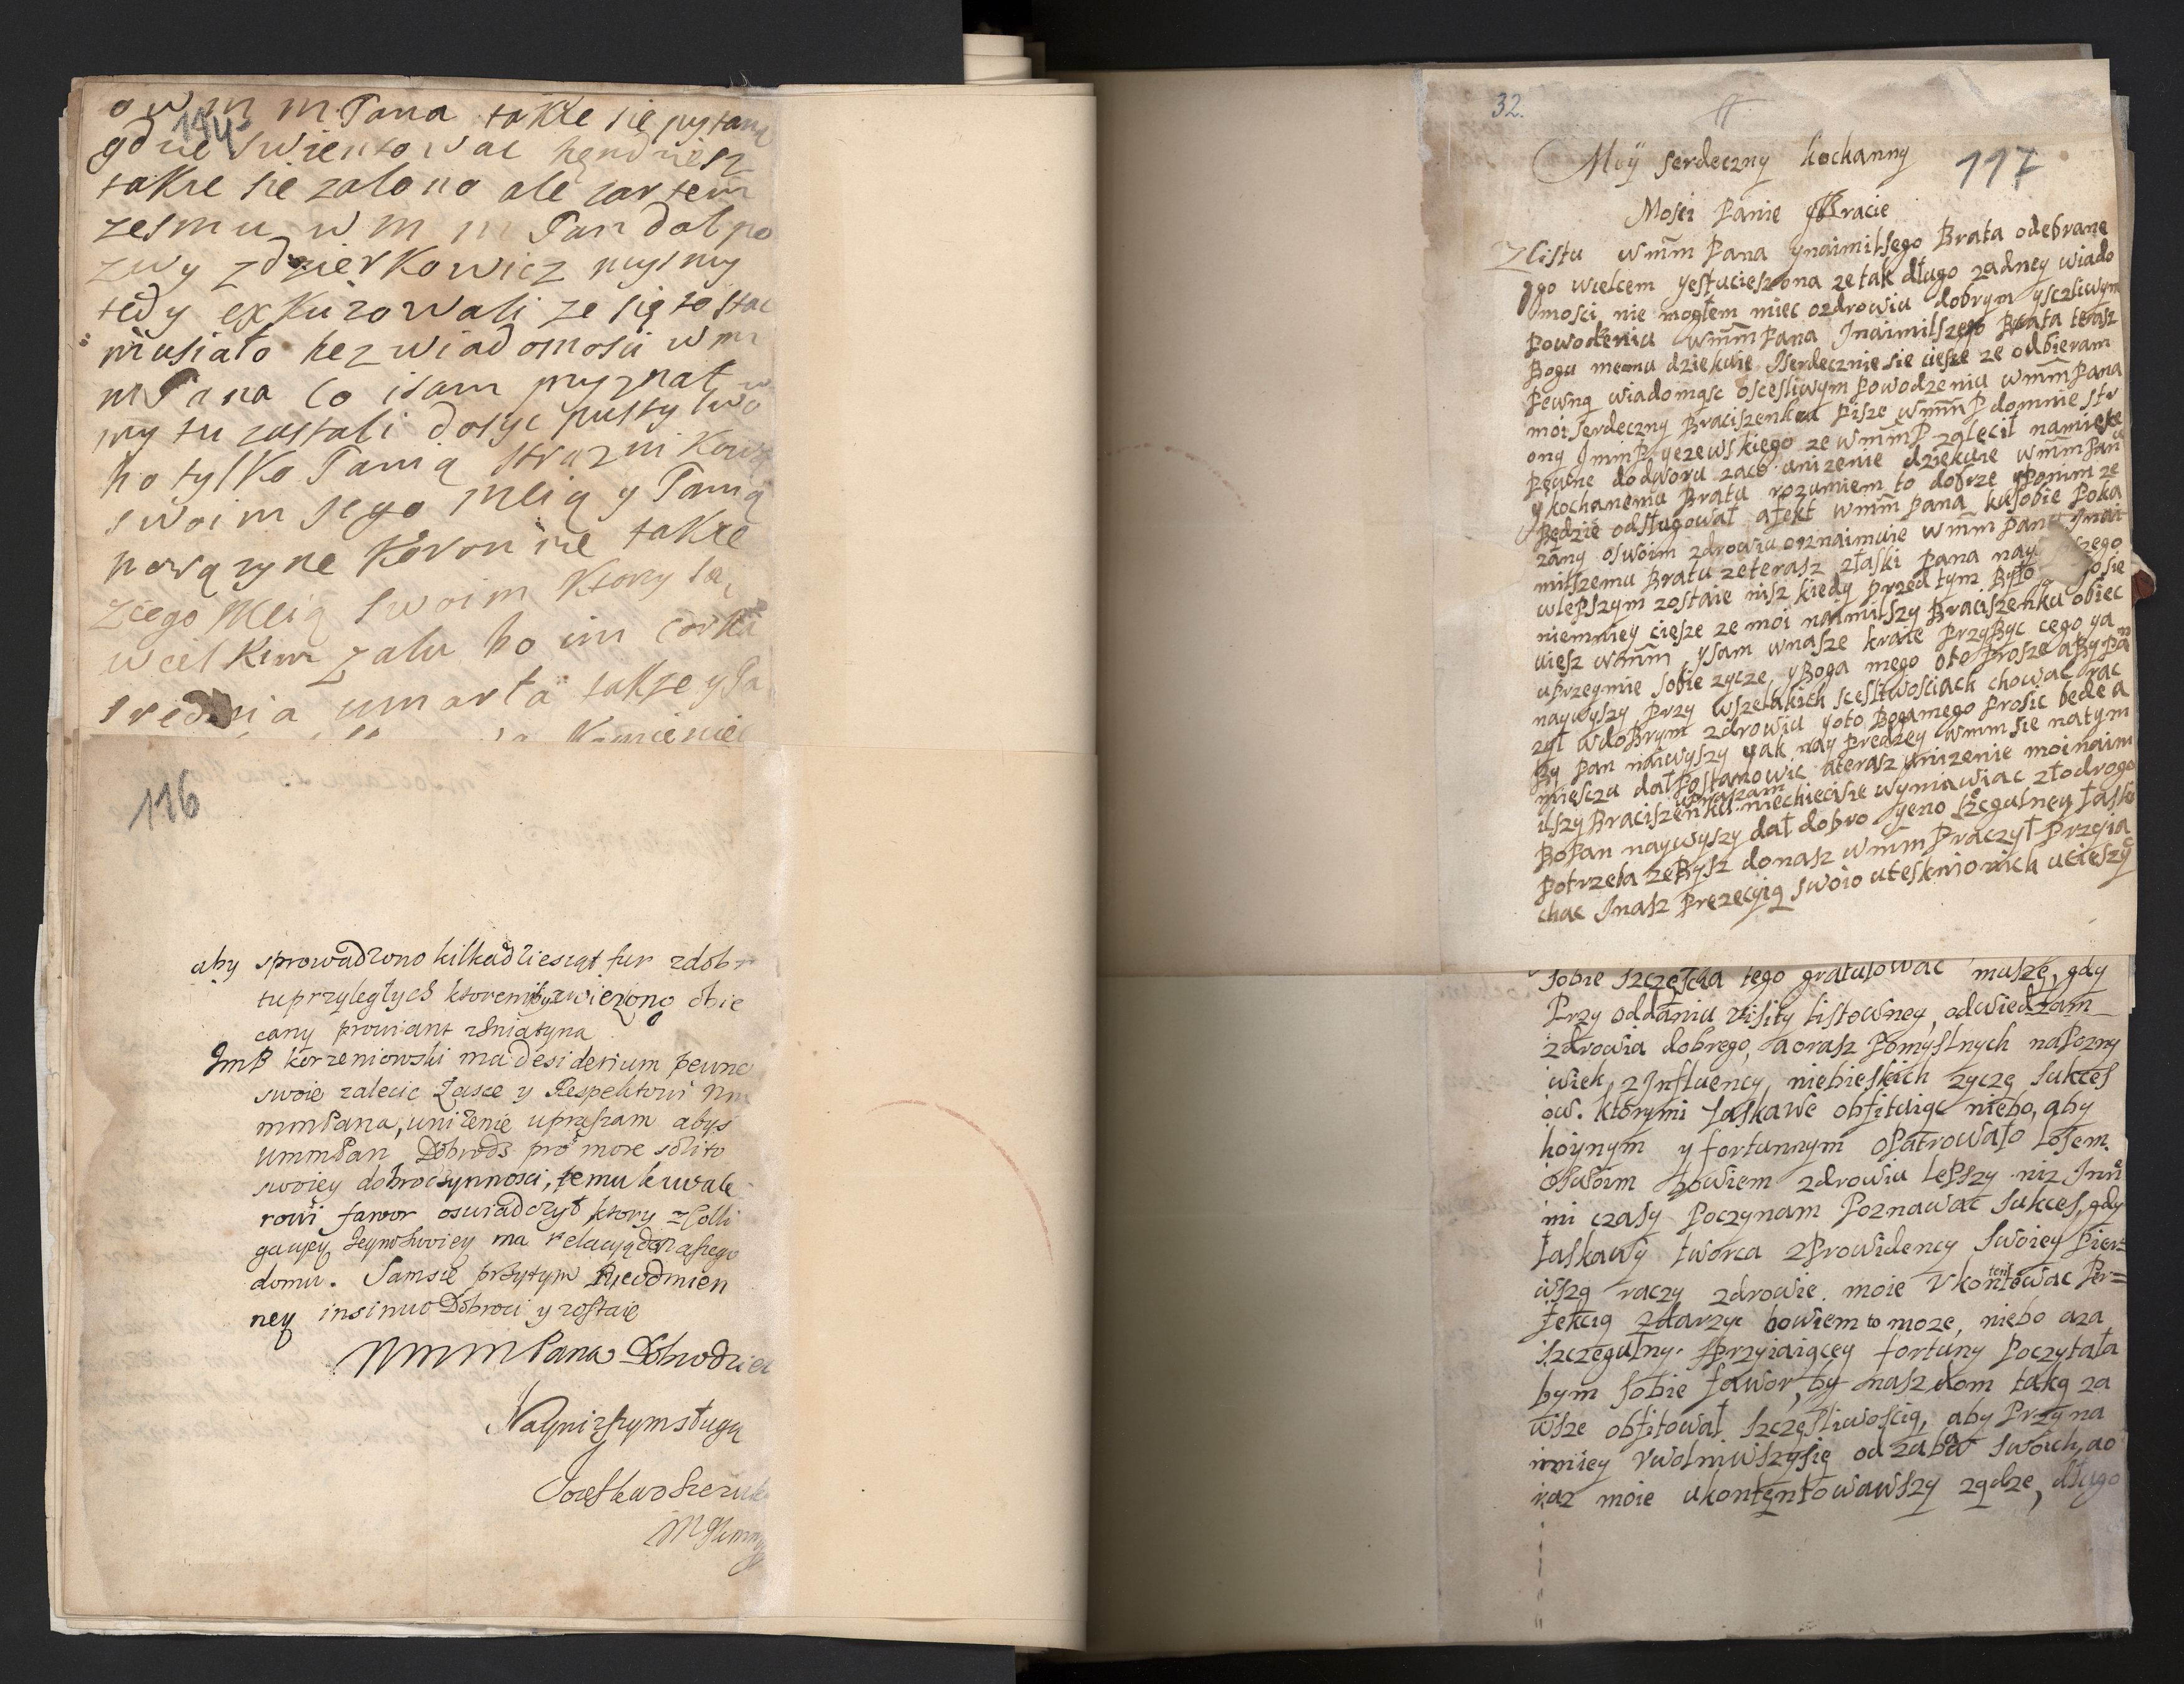 o w m m Pana takze się pytano
194
gdzie Swientowac hendziesz
takze sie zalono ale zartem
zesmu w m m Pan dal po
zwy zdzierkowicz mysmy
tedy exkuzowali ze się to stac
musiało bez wiadomosci w m
m Pana Co isam przyznał
my tu zastali dosyc pusty
bo tylko Panią Strazni Kową
swoim Jego Mcią y Panią
Koronne takze
swoim Ktorzy są
wielkim zalu bo im corka
srednia umarła takze y Pa
Kamieniec
116
aby sprowadzono kilkadziesiąt fur zdobr
tuprzyległych ktoremi by zwiezono obie
cany prowiant zSniatyna
ImP Korzeniowski ma desiderium pewne
swoie zalecic Łasce y Respektowi
mmPana, unizenie upraszam abys
WmmPan Dobrodz pro more solito
swoiey dobroczynnosci, temu kawale
rowi fawor oswiadczył ktory zColli
gacyey Zeymhwoiey ma relacyą donaszego
domu. Samsie przytym Nieodmien
ney insinuo Dobroci y zostaię
WmmMPana Dobrodziei
Nayniszszym sługą
32.
117
Moÿ serdeczny kochanny
Mosci Panie Bracie
Zlistu wmm Pana ynaimilsego Brata odebrane
go wielcem yestucieszona zetak długo zadney wiado
mosci nie mogłem miec ozdrowiu dobrym ysczliwym
Powodzeniu wmm Pana Inaimilszego Brata terasz
Bogu memu dziekuie Iserdecznie sie ciesze ze odbieram
Pewną wiadomosc osceslivym Powodzeniu wmm Pana
moi Serdeczny Braciszenku Pisze wmm P domnie str
ony ImmP yezewskiego ze wmm P zalecił namieste
Pewne dodworu zaco unizenie dziekuie wmm Pan
y kochanemu Bratu rozumiem to dobrze yPonim ze
Będzie odsługował afekt wmm pana kusobie Poka
zany oswoim zdrowiu oznaimuie wmm Panu Inai
milszemu Bratu zeterasz złaski Pana nay szego
wlepszym zostaie nisz kiedy przed tym Było osie
niemniey ciesze ze moi naimilszy Braciszenku obiec
uiesz wmm ysam wnasze kraie Przybyc cego ya
uprzeymie sobie zycze, yBoga mego oto Prosze aby Pan
naywyszy Przy wszelakich scesliwosciach chował rac
zył wdobrym zdrowiu yoto Bogamego Prosic bede a
By Pan naiwyszy yak nay predzey wmm sie natym
miesczu dał Postanowic aterasz unizenie moi naim
upraszam
ilszy Braciszenku niechieciesie wymawiac złodrogo
Bo Pan naywyszy dał dobro yeno szcegulney łaski
Potrzeba zebysz donasz wmm Praczył Przyia
chac Inasz Prezecyią swoio utesknionich ucieszyc
Sobie Szczęscia tego gratulowac muszę, gdy
Przy oddaniu visity listowney, odwiedzam
zdrowia dobrego, aorasz Pomyslnych napozny
wiek, zInfluency, niebieskich zyczę sukces
ow. ktorymi łaskawe obfituiąc niebo, aby
hoynym y fortunnym oPatrowało losem.
oswoim bowiem zdrowiu lepszy niz Inne
mi czasy Poczynam Poznawac sukces, gdy
łaskawy tworca zProwidency swoiey Pier=
wszą raczy zdrowie moie Vkontętowac Per=
fekcią zdarzyc bowiem to moze, niebo aza
szczegulny. Sprzyiaiącey fortuny Poczytała
bym sobie fawor, by nasz dom taką za
wsze obfitował szczęsliwoscią, aby Przyna
mniey Vwolniwszysię od zabaw swoich, ao
raz moie ukontęntowawszy ządze, długo